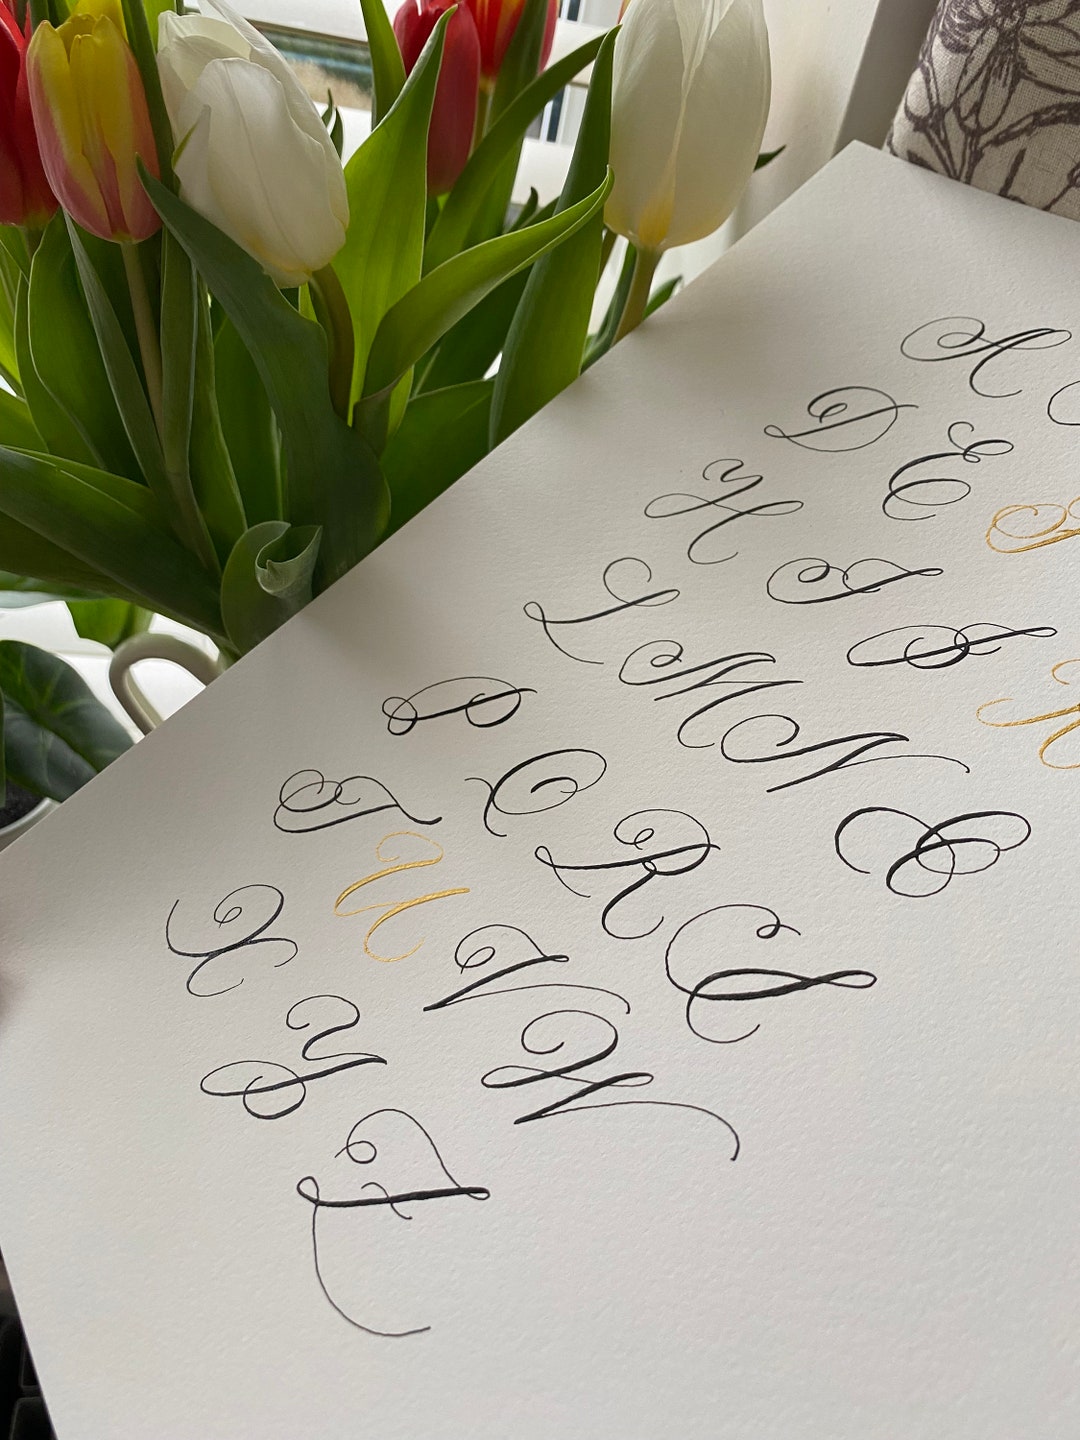 A
D E F
H I J K
L M N O
P Q R S
T U V W
X Y Z